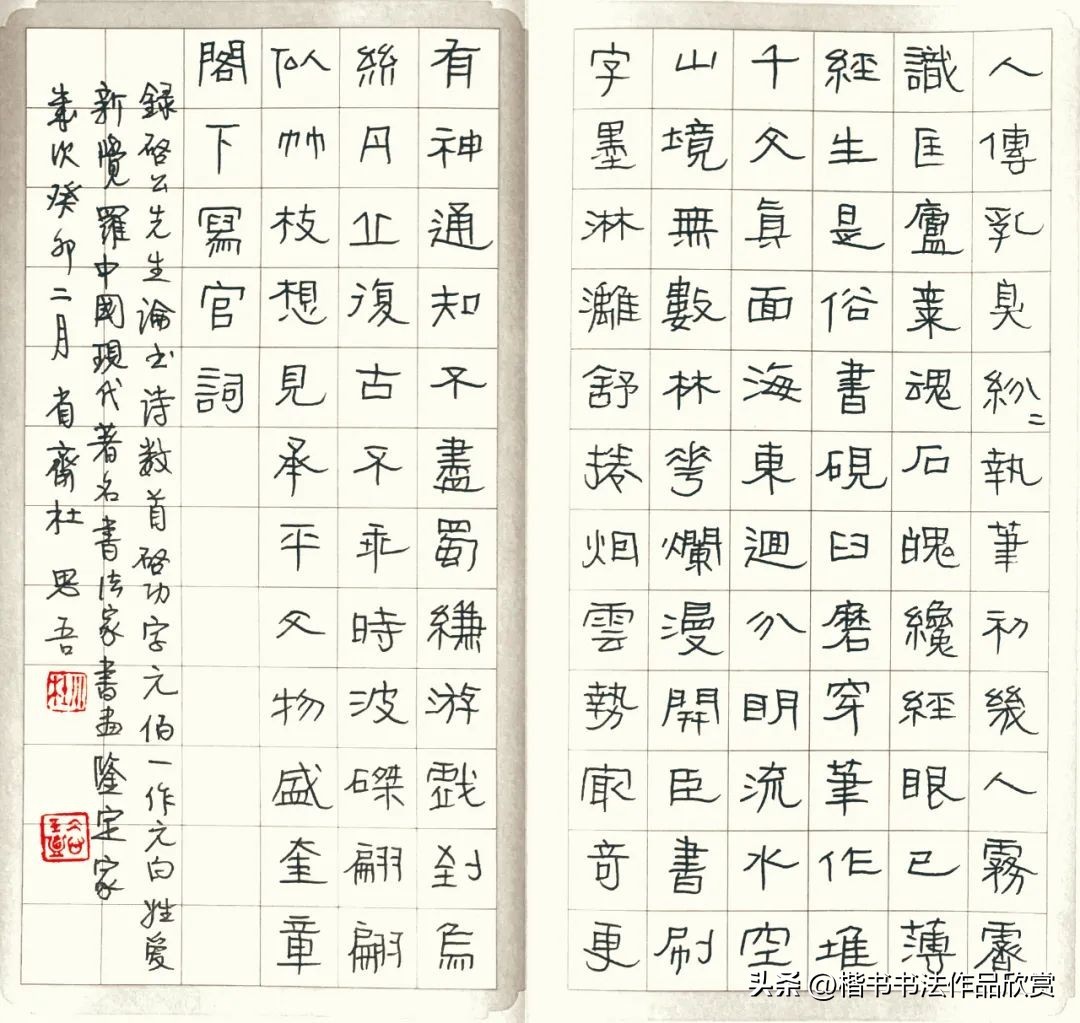 人傳乳臭紛〻執筆初幾人霧霽
識匡廬棗魂石魄纔經眼已薄
經生是俗書硯臼磨穿筆作堆
千文真面海東迴分明流水空
山境無數林花爛漫開臣書刷
字墨淋灕舒捲烟雲勢最奇更
有神通知不盡蜀縑游戲到烏
絲丹止復古不乖時波磔翩翩
似竹枝想見承平文物盛奎章
閣下寫官詞
錄啓公先生論书诗数首啓功字元伯一作元白姓爱
新覺羅中國現代著名書法家書畫鉴定家
歲次癸卯二月齋杜思吾
头条 @楷书书法作品欣赏